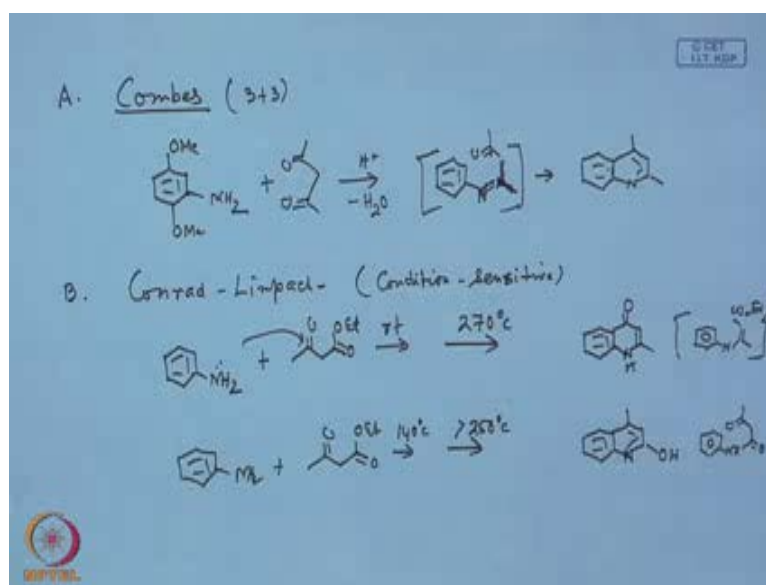 © CET
I.I.T. KGP
A. Combes (3+3)
OMe
NH2
OMe
+
O
O
H+
- H2O
O
N
N
B. Conrad - Limpach - (Condition - Sensitive)
NH2
+
O OEt
O
rt
270°C
O
N
H
CO2Et
N
NH2
+
O OEt
O
140°C
>250°C
N
OH
O
O
NPTEL